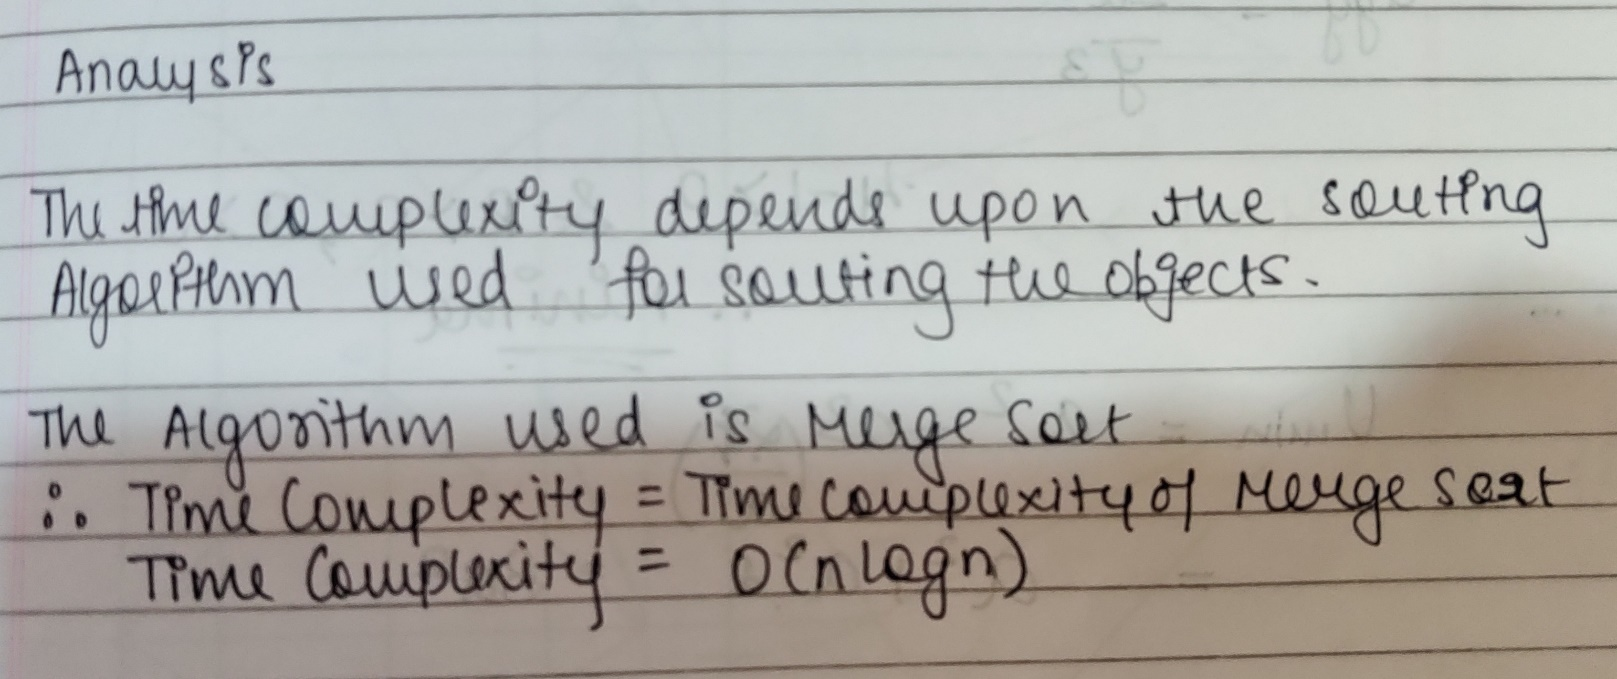 Analysis
The time complexity depends upon the sorting
Algorithm used for sorting the objects.
The Algorithm used is Merge Sort
∴ Time Complexity = Time Complexity of Merge Sort
Time Complexity = O(n log n)